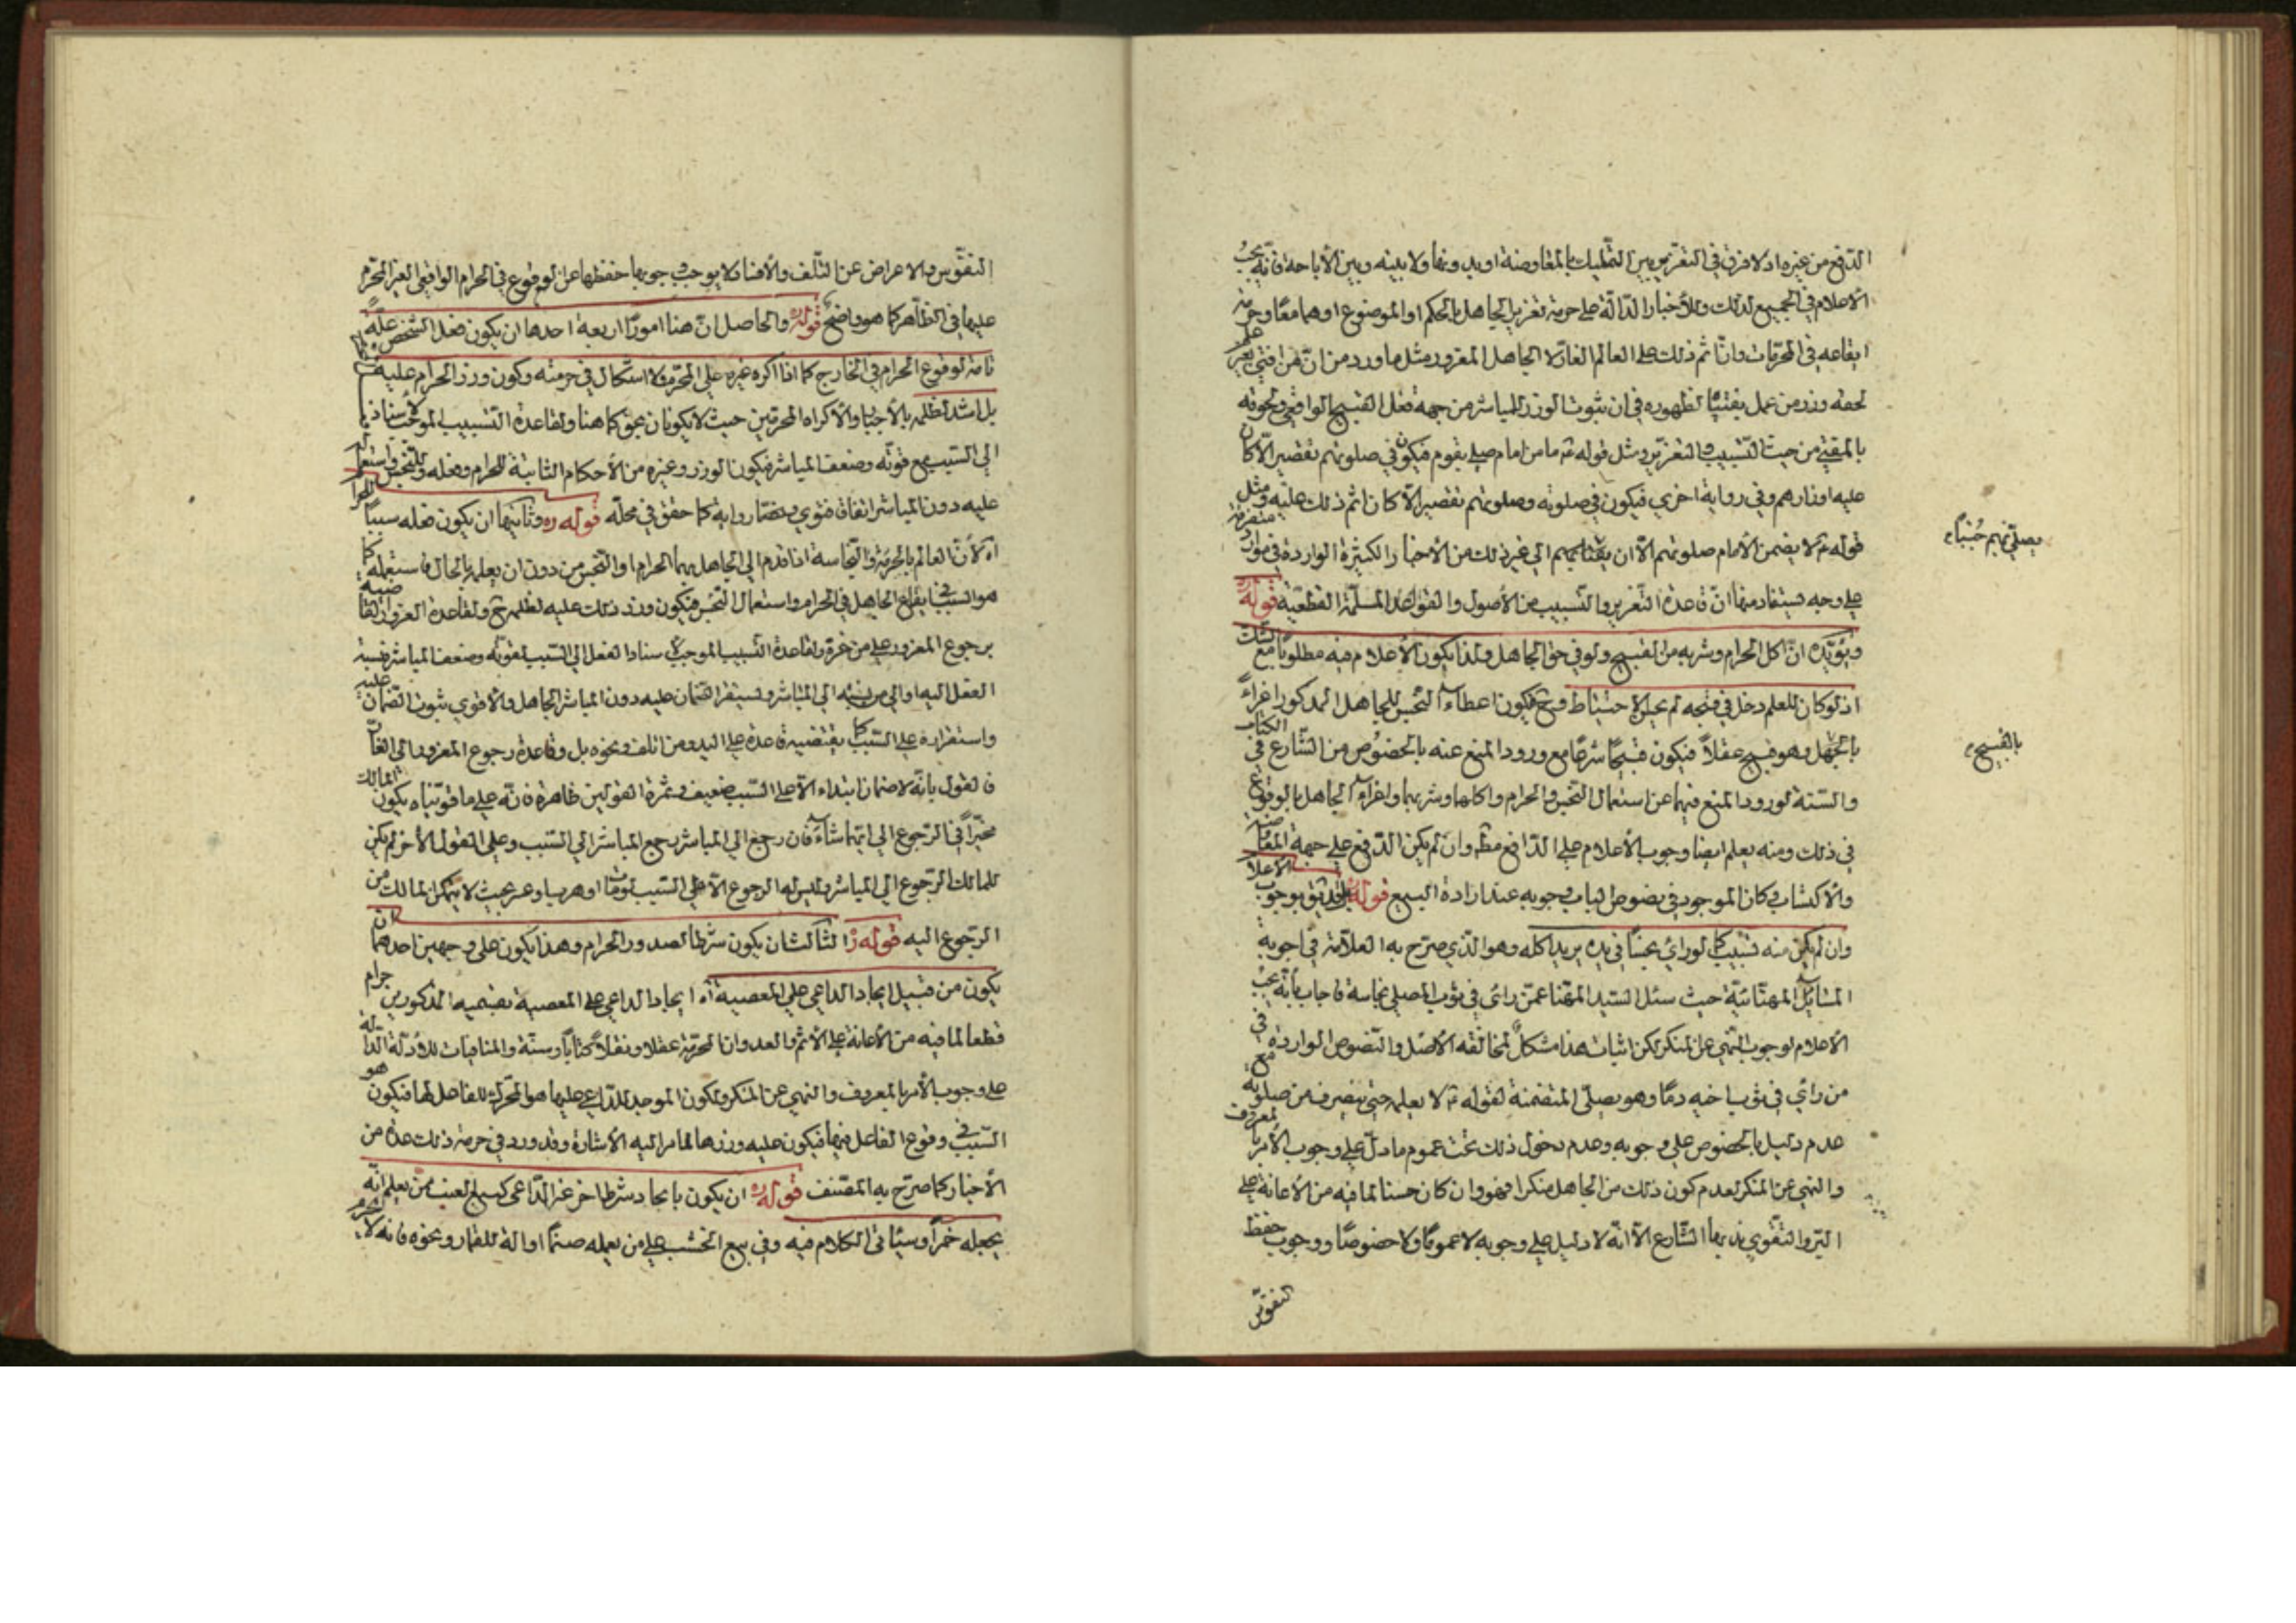 الدفع من غيره اذ لا فرق في التغرير بين التمليك بالمعاوضة او بدونها ولا بينه وبين الأباحة فانه يجب
الأعلام في الجميع لذلك وللأخبار الدالة على حرمة تغرير الجاهل بالحكم او الموضوع او هما معا وحرمة
ايقاعه في المحرمات وان اثم ذلك على العالم الغار لا الجاهل المغرور مثل ما ورد من ان من افتى بغير علم
لحقه وزر من عمل بفتياه لظهوره في ان ثبوت الوزر للمباشر من جهة فعل القبيح الواقعي ولحوقه
بالمفتي من حيث التسبيب والتغرير ومثل قوله ع ما من امام صلى بقوم فيكون في صلوتهم تقصير الا كان
عليه اوزارهم وفي رواية اخرى فيكون في صلوته وصلوتهم تقصير الا كان اثم ذلك عليه ومثل
قوله ع لا يضمن الأمام صلوتهم الا ان يصلي بهم جنبا الى غير ذلك من الأخبار الكثيرة الواردة في موارد متفرقة
على وجه يستفاد منها ان قاعدة التغرير والتسبيب من الأصول والقواعد المسلمة القطعية قوله ره
ويؤيده ان اكل الحرام وشربه من القبيح ولو في حق الجاهل ولذا يكون الأعلام فيه مطلوبا مع الشك
اذ لو كان للعلم دخل في قبحه لم يحسن الاحتياط وح فيكون اعطاء النجس للجاهل المذكور اغراء
بالقبيح
بالجهل وهو قبيح عقلا فيكون قبيحا شرعا مع ورود المنع عنه بالخصوص من الشارع في الكتاب
والسنة لورود المنع فيهما عن استعمال النجس والحرام واكلهما وشربهما واغراء الجاهل بالوقوع
في ذلك ومنه يعلم ايضا وجوب الأعلام على الدافع مطـ وان لم يكن الدفع على جهة المعاوضة
والاكتساب وكان الموجود في نصوص الباب وجوبه عند ارادة البيع قوله بل قد يقـ بوجوب الاعلام
وان لم يكن منه تسبيب كما لو رأى نجسا في يده يريد اكله وهو الذي صرح به العلامة في اجوبة
المسائل المهنائية حيث سئل السيد المهنا عمن رأى في ثوب المصلي نجاسة فاجاب بأنه يجب
الأعلام لوجوب النهي عن المنكر لكن اثبات هذا مشكل لمخالفته الأصل والنصوص الواردة في
من رأى في ثوب اخيه دما وهو يصلي المتضمنة لقوله ع لا يعلمه حتى ينصرف من صلوته مع
عدم دليل بالخصوص على وجوبه وعدم دخول ذلك تحت عموم ما دل على وجوب الأمر بالمعروف
والنهي عن المنكر لعدم كون ذلك من الجاهل منكرا فهو وان كان حسنا لما فيه من الأعانة على
البر والتقوى ندب بها الشارع الا انه لا دليل على وجوبه لا عموما ولا خصوصا ووجوب حفظ
النفوس
النفوس والاعراض عن التلف والأفساد لا يوجب وجوبها حفظها عن الوقوع في الحرام الواقعي الغير المحرم
عليها في الظاهر كما هو واضح قوله ره والحاصل ان هنا امورا اربعة احدها ان يكون فعل الشخص علة
تامة لوقوع الحرام في الخارج كما اذا اكره غيره على المحرم ولا اشكال في حرمته وكون وزر الحرام عليه
بل اشد لظلمه بالأجبار والأكراه المحرمين حيث لا يكونان بحق كما هنا ولقاعدة التسبيب الموجب لأسناد
الى السبب مع قوته وضعف المباشر فيكون الوزر وغيره من الأحكام الثابتة للحرام وفعله وللنجس واستعماله
عليه دون المباشر اتفاقا فتوى ونصا ورواية كما حقق في محله قوله ره وثانيها ان يكون فعله سببا للحرام
آه لأن العالم بالحرمة والنجاسة اذا قدم الى الجاهل بهما الحرام او النجس من دون ان يعلمه بالحال فاستعمله كما
هو السبب في ايقاع الجاهل في الحرام واستعمال النجس فيكون وزر ذلك عليه لظلمه ح ولقاعدة الغرور القاضية
برجوع المغرور على من غره ولقاعدة التسبيب الموجب لأسناد الفعل الى السبب لقوته وضعف المباشر فنسبة
الفعل اليه اولى من نسبته الى المباشر ويستقر الضمان عليه دون المباشر الجاهل والأقوى ثبوت الضمان عليه
واستقراره على السبب كما يقتضيه قاعدة على اليد ومن اتلف ونحوه بل وقاعدة رجوع المغرور الى الغار
فالقول بانه لا ضمان ابتداء الا على السبب ضعيف وثمرة القولين ظاهرة فانه على ما قويناه يكون المالك
مخيرا في الرجوع الى ايهما شاء فان رجع الى المباشر رجع المباشر الى السبب وعلى القول الأخر لم يكن
للمالك الرجوع الى المباشر وليس له الرجوع الا على السبب لو مات او هرب او عسر بحيث لا يتمكن المالك من
الرجوع اليه قوله ره الثالث ان يكون شرطا لصدور الحرام وهذا يكون على وجهين احدهما ان
يكون من قبيل ايجاد الداعي على المعصية آه ايجاد الداعي على المعصية بقسميه المذكورين حرام
قطعا لما فيه من الأعانة على الأثم والعدوان المحرمة عقلا ونقلا كتابا وسنة والمنافيات للأدلة الدالة
على وجوب الأمر بالمعروف والنهي عن المنكر ولكون الموجد للداعي عليها هو المحرك للفاعل لها فيكون هو
السبب في وقوع الفاعل فيها فيكون عليه وزرها لما مر اليه الأشارة وقد ورد في حرمة ذلك عدة من
الأخبار كما صرح به المصنف قوله ره ان يكون بايجاد شرط اخر غير الداعي كبيع العنب ممن يعلم انه
يجعله خمرا وسيأتي الكلام فيه وفي بيع الخشب على من يعمله صنما او آلة للقمار ونحوه فانه لا يحرم